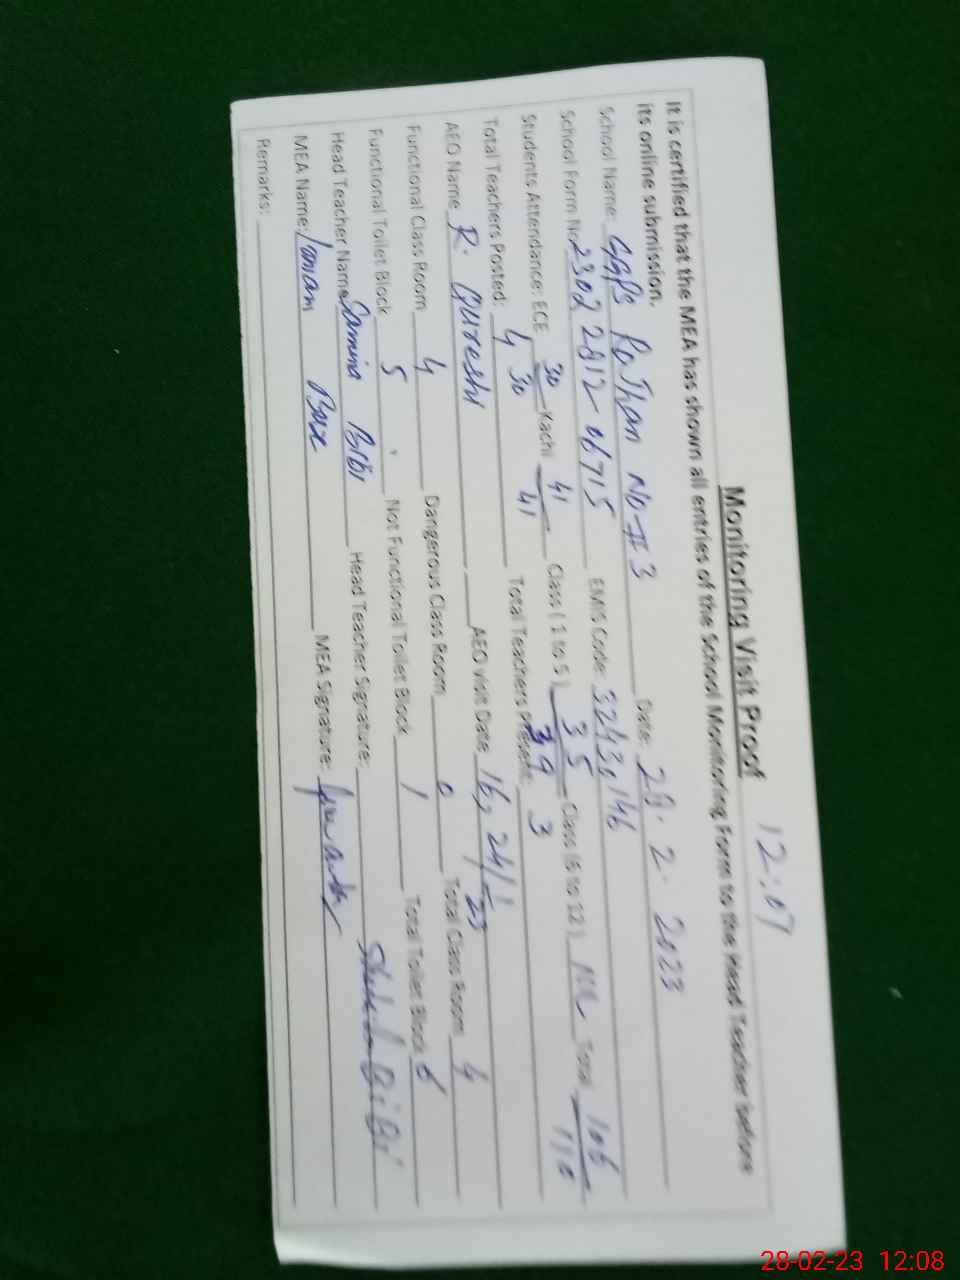 12:07
Monitoring Visit Proof
It is certified that the MEA has shown all entries of the School Monitoring Form to the Head Teacher before
its online submission.
School Name: GGPS Rojhan No-# 3 Date: 28. 2. 2023
School Form No. 2302 2812-06715 EMIS Code: 32430146
Students Attendance: ECE 30/30 Kachi 41/41 Class ( 1 to 5 ) 35/39 Class (6 to 12 ) Total 106/110
Total Teachers Posted: 4 Total Teachers Present: 3
AEO Name R. Qureshi AEO visit Date 16, 24/1/23
Functional Class Room 4 Dangerous Class Room 0 Total Class Room 4
Functional Toilet Block 5 Not Functional Toilet Block 1 Total Toilet Block 6
Head Teacher Name Samina Bibi Head Teacher Signature:
MEA Name: Imam Bax MEA Signature:
Remarks:
28-02-23 12:08